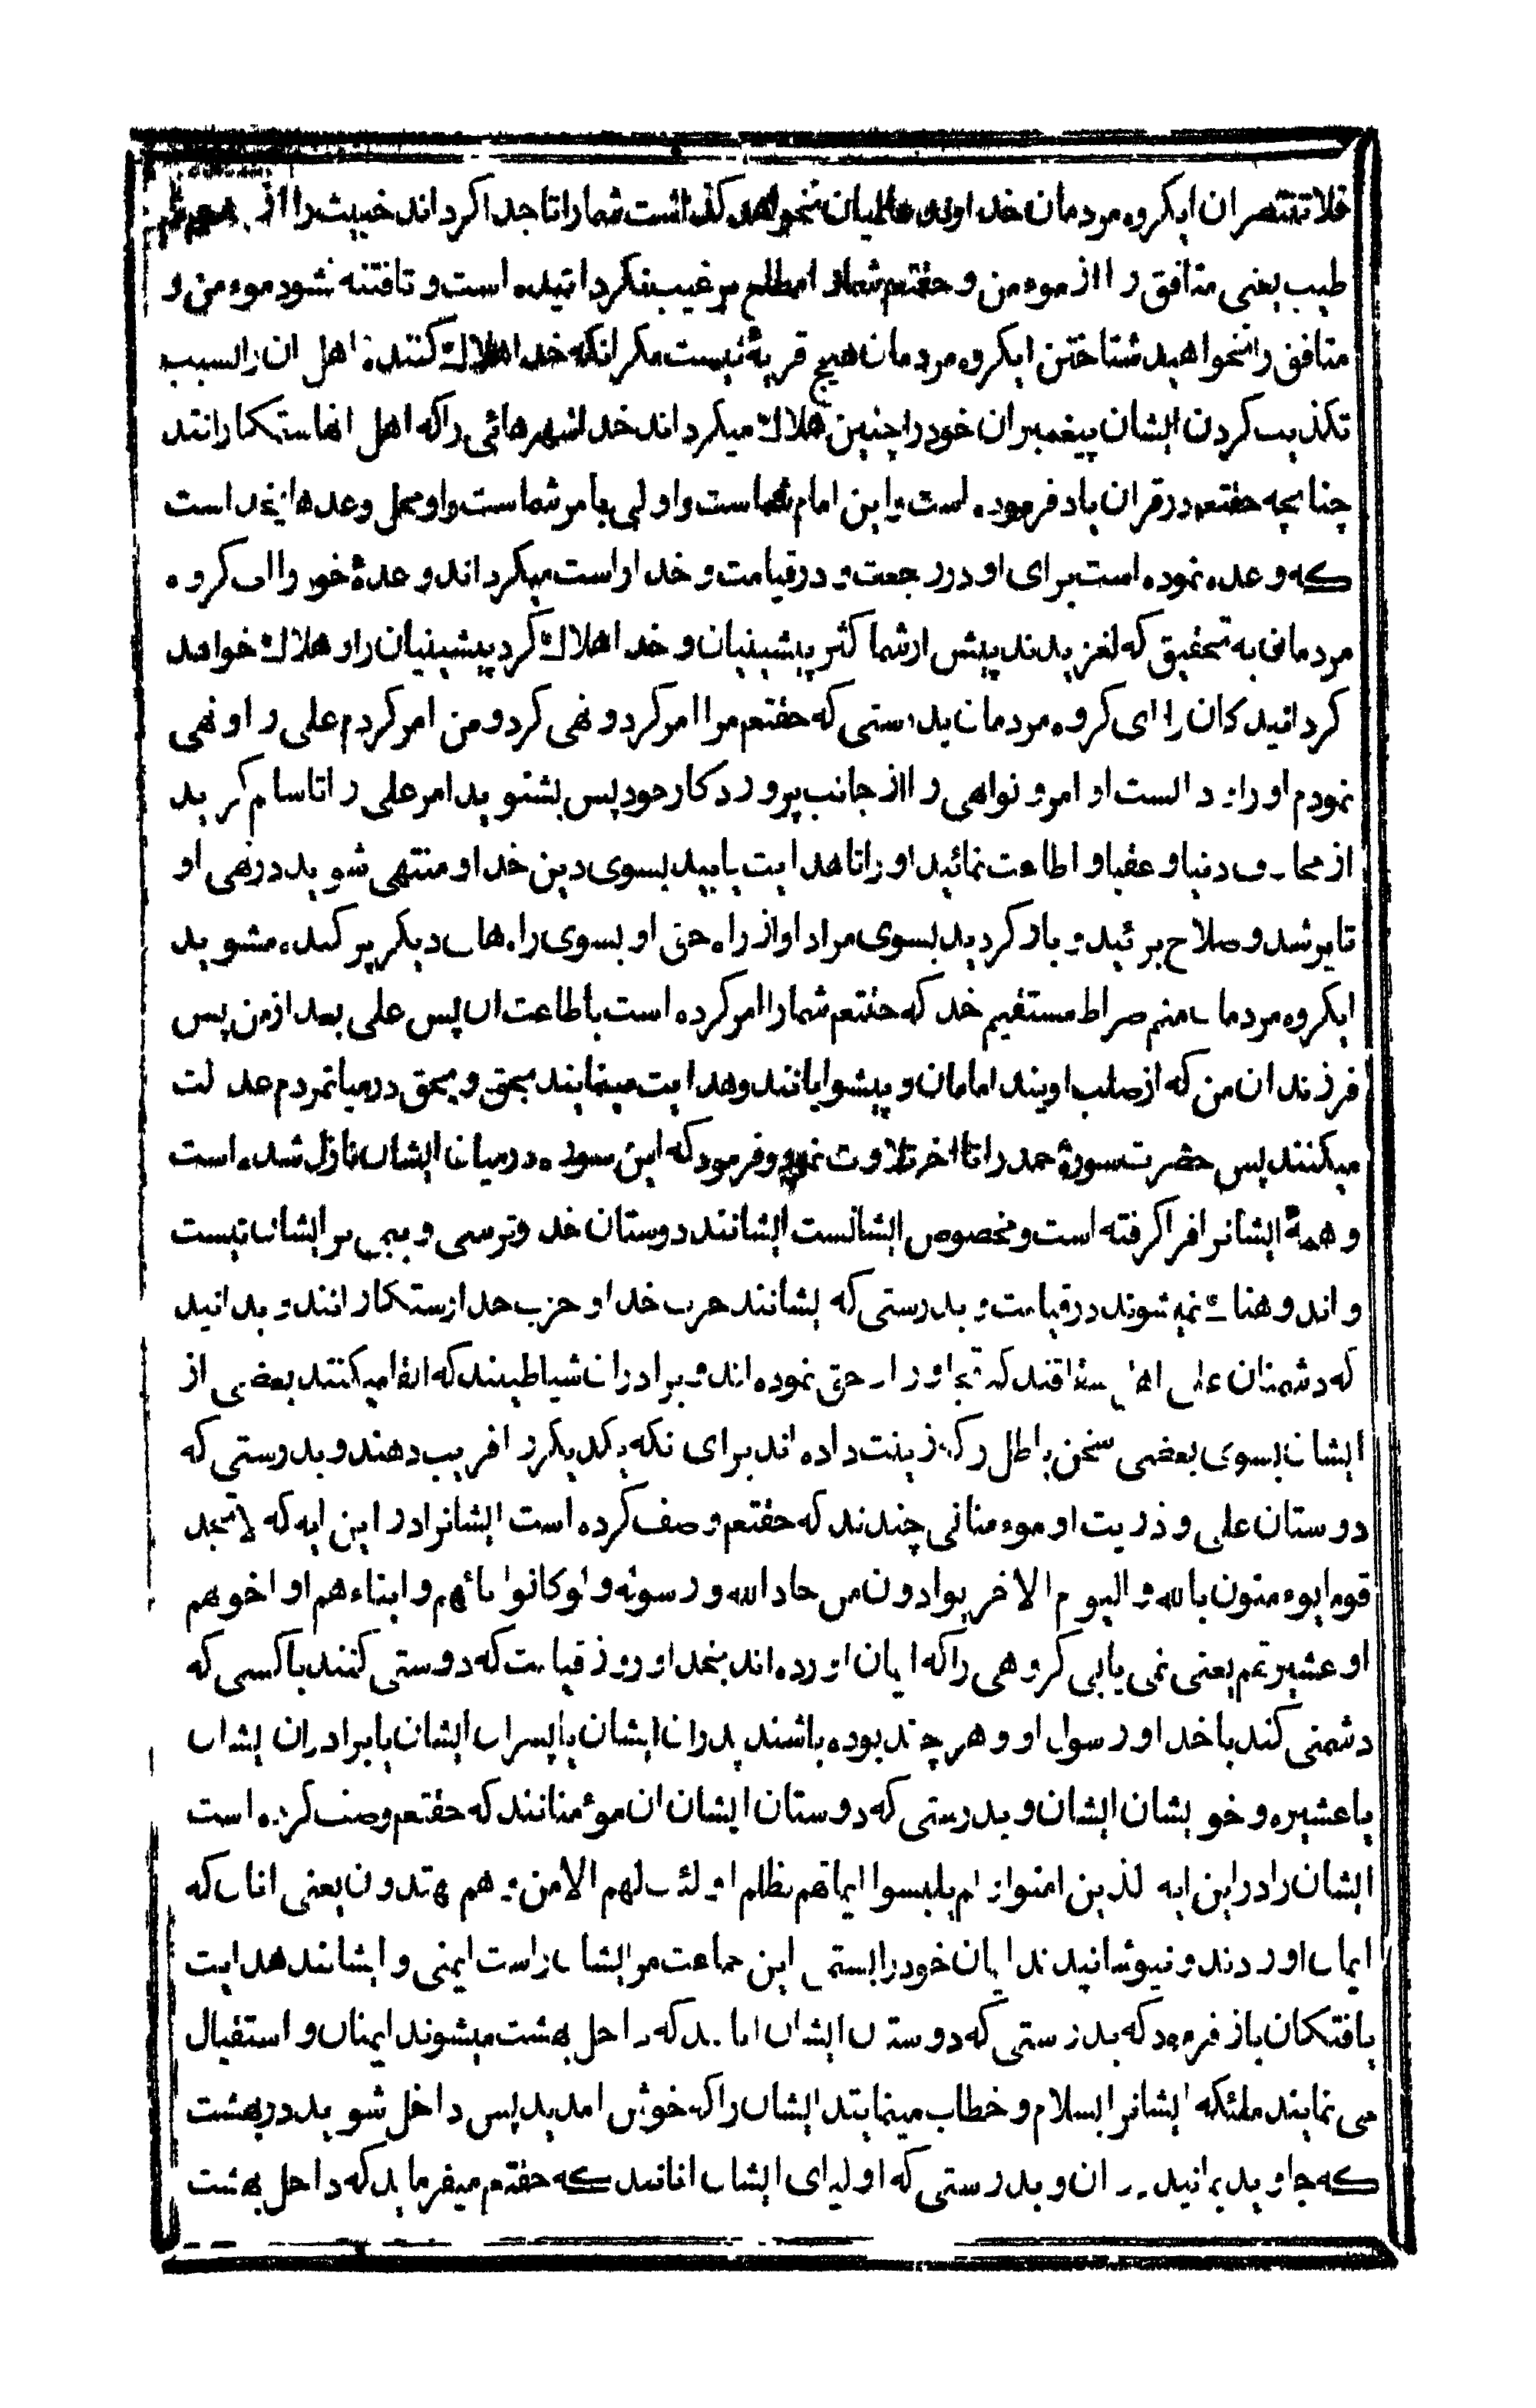 فلا تنتصران ایکروه مردمان خداوند عالمیان نخواهد کذاشت شما را تا جدا کرداند خبیث را از
طیب یعنی منافق را از موءمن و حقتعم شما را مطلع بر غیب نکردانیده است و تا فتنه نشود موءمن و
منافق را نخواهید شناختن ایکروه مردمان هیچ قریهٔ نیست مکر انکه خدا هلاک کننده اهل ان را بسبب
تکذیب کردن ایشان پیغمبران خود را چنین هلاک میکرداند خدا شهرهائی را که اهل انها ستمکارانند
چنانچه حقتعم در قران یاد فرموده است و این امام شماست و اولی بامر شماست و او محل وعدهای خداست
که وعده نموده است برای او در رجعت و در قیامت و خدا راست میکرداند وعدهٔ خود را ای کروه
مردمان به تحقیق که لغزیدند پیش از شما اکثر پیشینیان و خدا هلاک کرد پیشینیان را و هلاک خواهد
کردانید کان را ای کروه مردمان بدرستی که حقتعم مرا امر کرد و نهی کرد و من امر کردم علی را و نهی
نمودم او را و دانست اوامر و نواهی را از جانب پروردکار خود پس بشنوید امر علی را تا سالم کردید
از مخاوف دنیا و عقبا و اطاعت نمائید او را تا هدایت یابید بسوی دین خدا و منتهی شوید در نهی او
تا برشد و صلاح برئید و باز کردید بسوی مراد او از راه حق او بسوی راههای دیکر پراکنده مشوید
ایکروه مردمان منم صراط مستقیم خدا که حقتعم شما را امر کرده است باطاعت ان پس علی بعد از من پس
فرزندان من که از صلب اویند امامان و پیشوایانند و هدایت مینمایند بحق و بحق در میانمردم عدالت
میکنند پس حضرت سورهٔ حمد را تا اخر تلاوت نمود و فرمود که این سوره در میان ایشان نازل شده است
و همهٔ ایشانرا فرا کرفته است و مخصوص ایشانست ایشانند دوستان خدا و ترسی و بیمی بر ایشان نیست
و اندوهناک نمیشوند در قیامت و بدرستی که ایشانند حزب خدا و حزب خدا رستکارانند و بدانید
که دشمنان علی اهل شقاقند که تجاوز از حق نموده اند و برادران شیاطینند که القا میکنند بعضی از
ایشان بسوی بعضی سخن باطل را که زینت داده اند برای انکه یکدیکر را فریب دهند و بدرستی که
دوستان علی و ذریت او موءمنانی چندند که حقتعم وصف کرده است ایشانرا در این ایه که لا تجد
قوما یوءمنون بالله و الیوم الاخر یوادون من حاد الله و رسوله و لو کانوا ابائهم و ابناءهم او اخوهم
او عشیرتهم یعنی نمی یابی کروهی را که ایمان اورده اند بخدا و روز قیامت که دوستی کنند با کسی که
دشمنی کند با خدا و رسول او و هر چند بوده باشند پدران ایشان یا پسران ایشان یا برادران ایشان
یا عشیره و خویشان ایشان و بدرستی که دوستان ایشان ان موٴمنانند که حقتعم وصف کرده است
ایشان را در این ایه الذین امنوا و لم یلبسوا ایمانهم بظلم اولئک لهم الامن و هم مهتدون یعنی انان که
ایمان اوردند و نپوشانیدند ایمان خود را بستمی این جماعت مر ایشان راست ایمنی و ایشانند هدایت
یافتکان باز فرمود که بدرستی که دوستان ایشان انانند که داخل بهشت میشوند ایمنان و استقبال
می نمایند ملئکه ایشانرا بسلام و خطاب مینمایند ایشان را که خوش امدید پس داخل شوید در بهشت
که جاوید بمانید در ان و بدرستی که اولیای ایشان انانند که حقتعم میفرماید که داخل بهشت